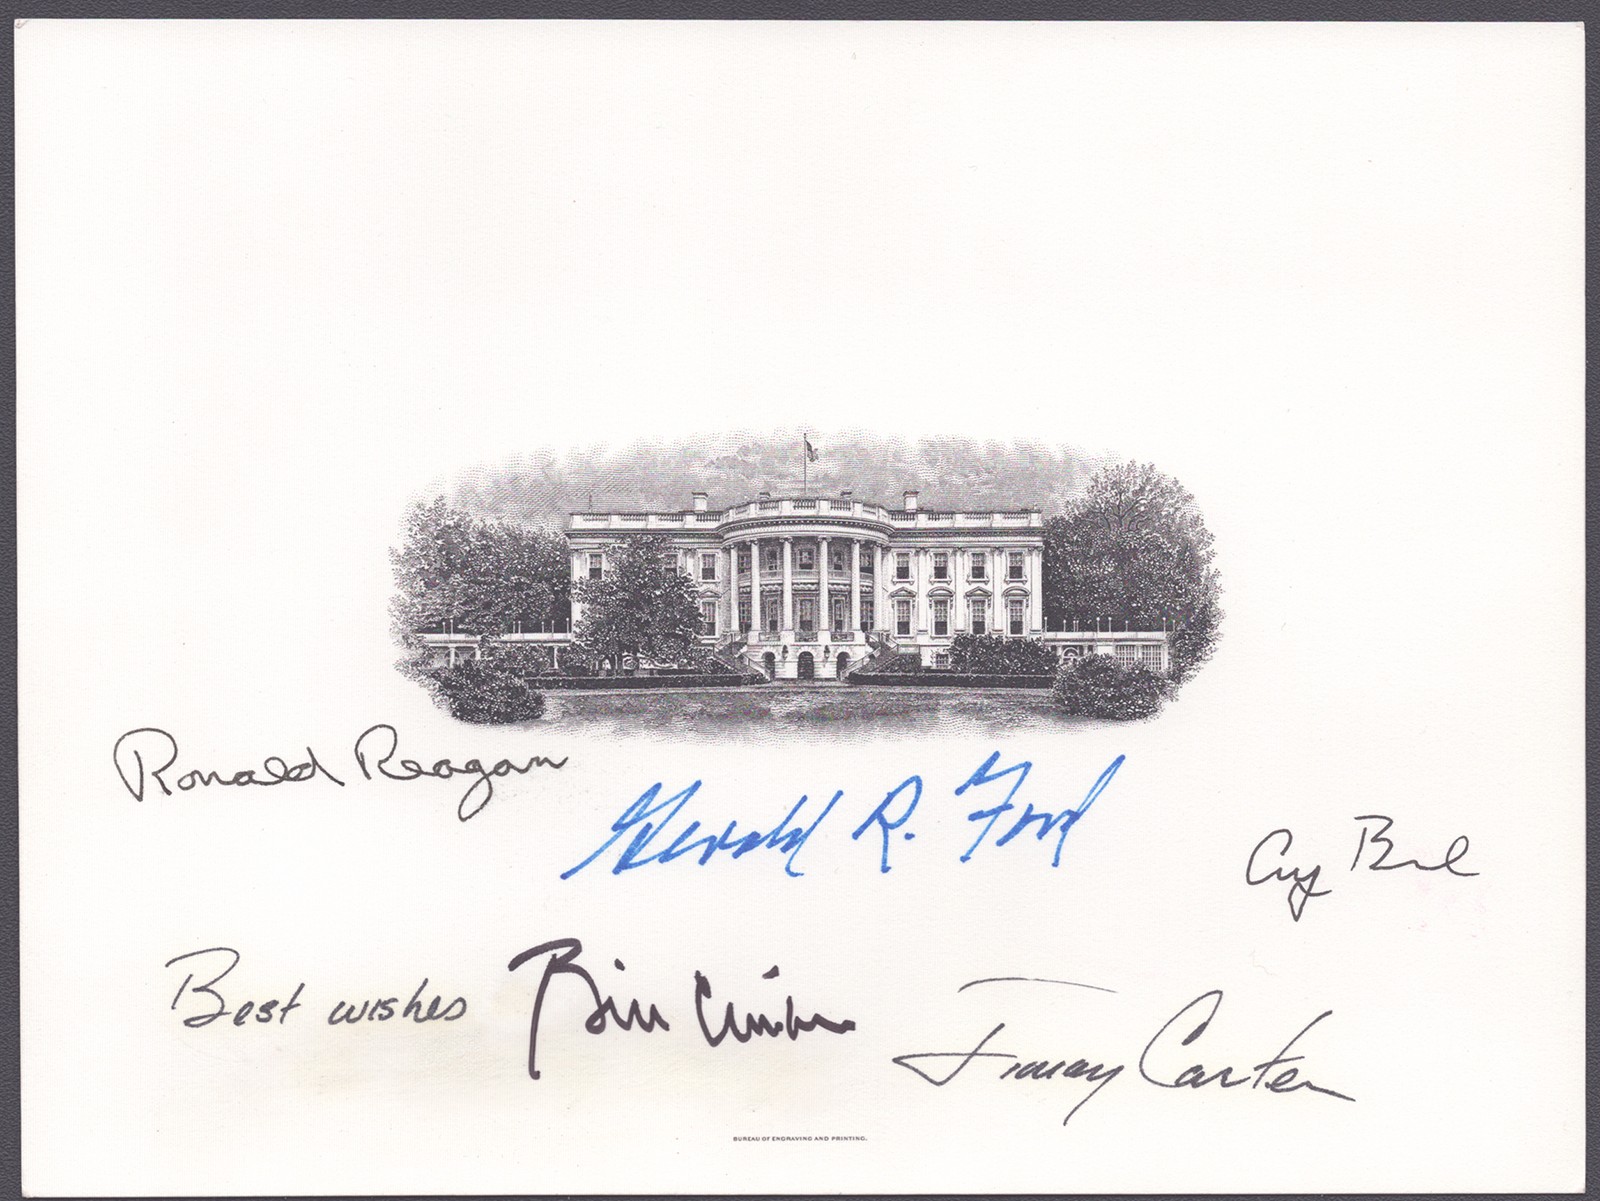 Ronald Reagan
Gerald R. Ford
Gg Bush
Best wishes Bill Clinton
Jimmy Carter
BUREAU OF ENGRAVING AND PRINTING.